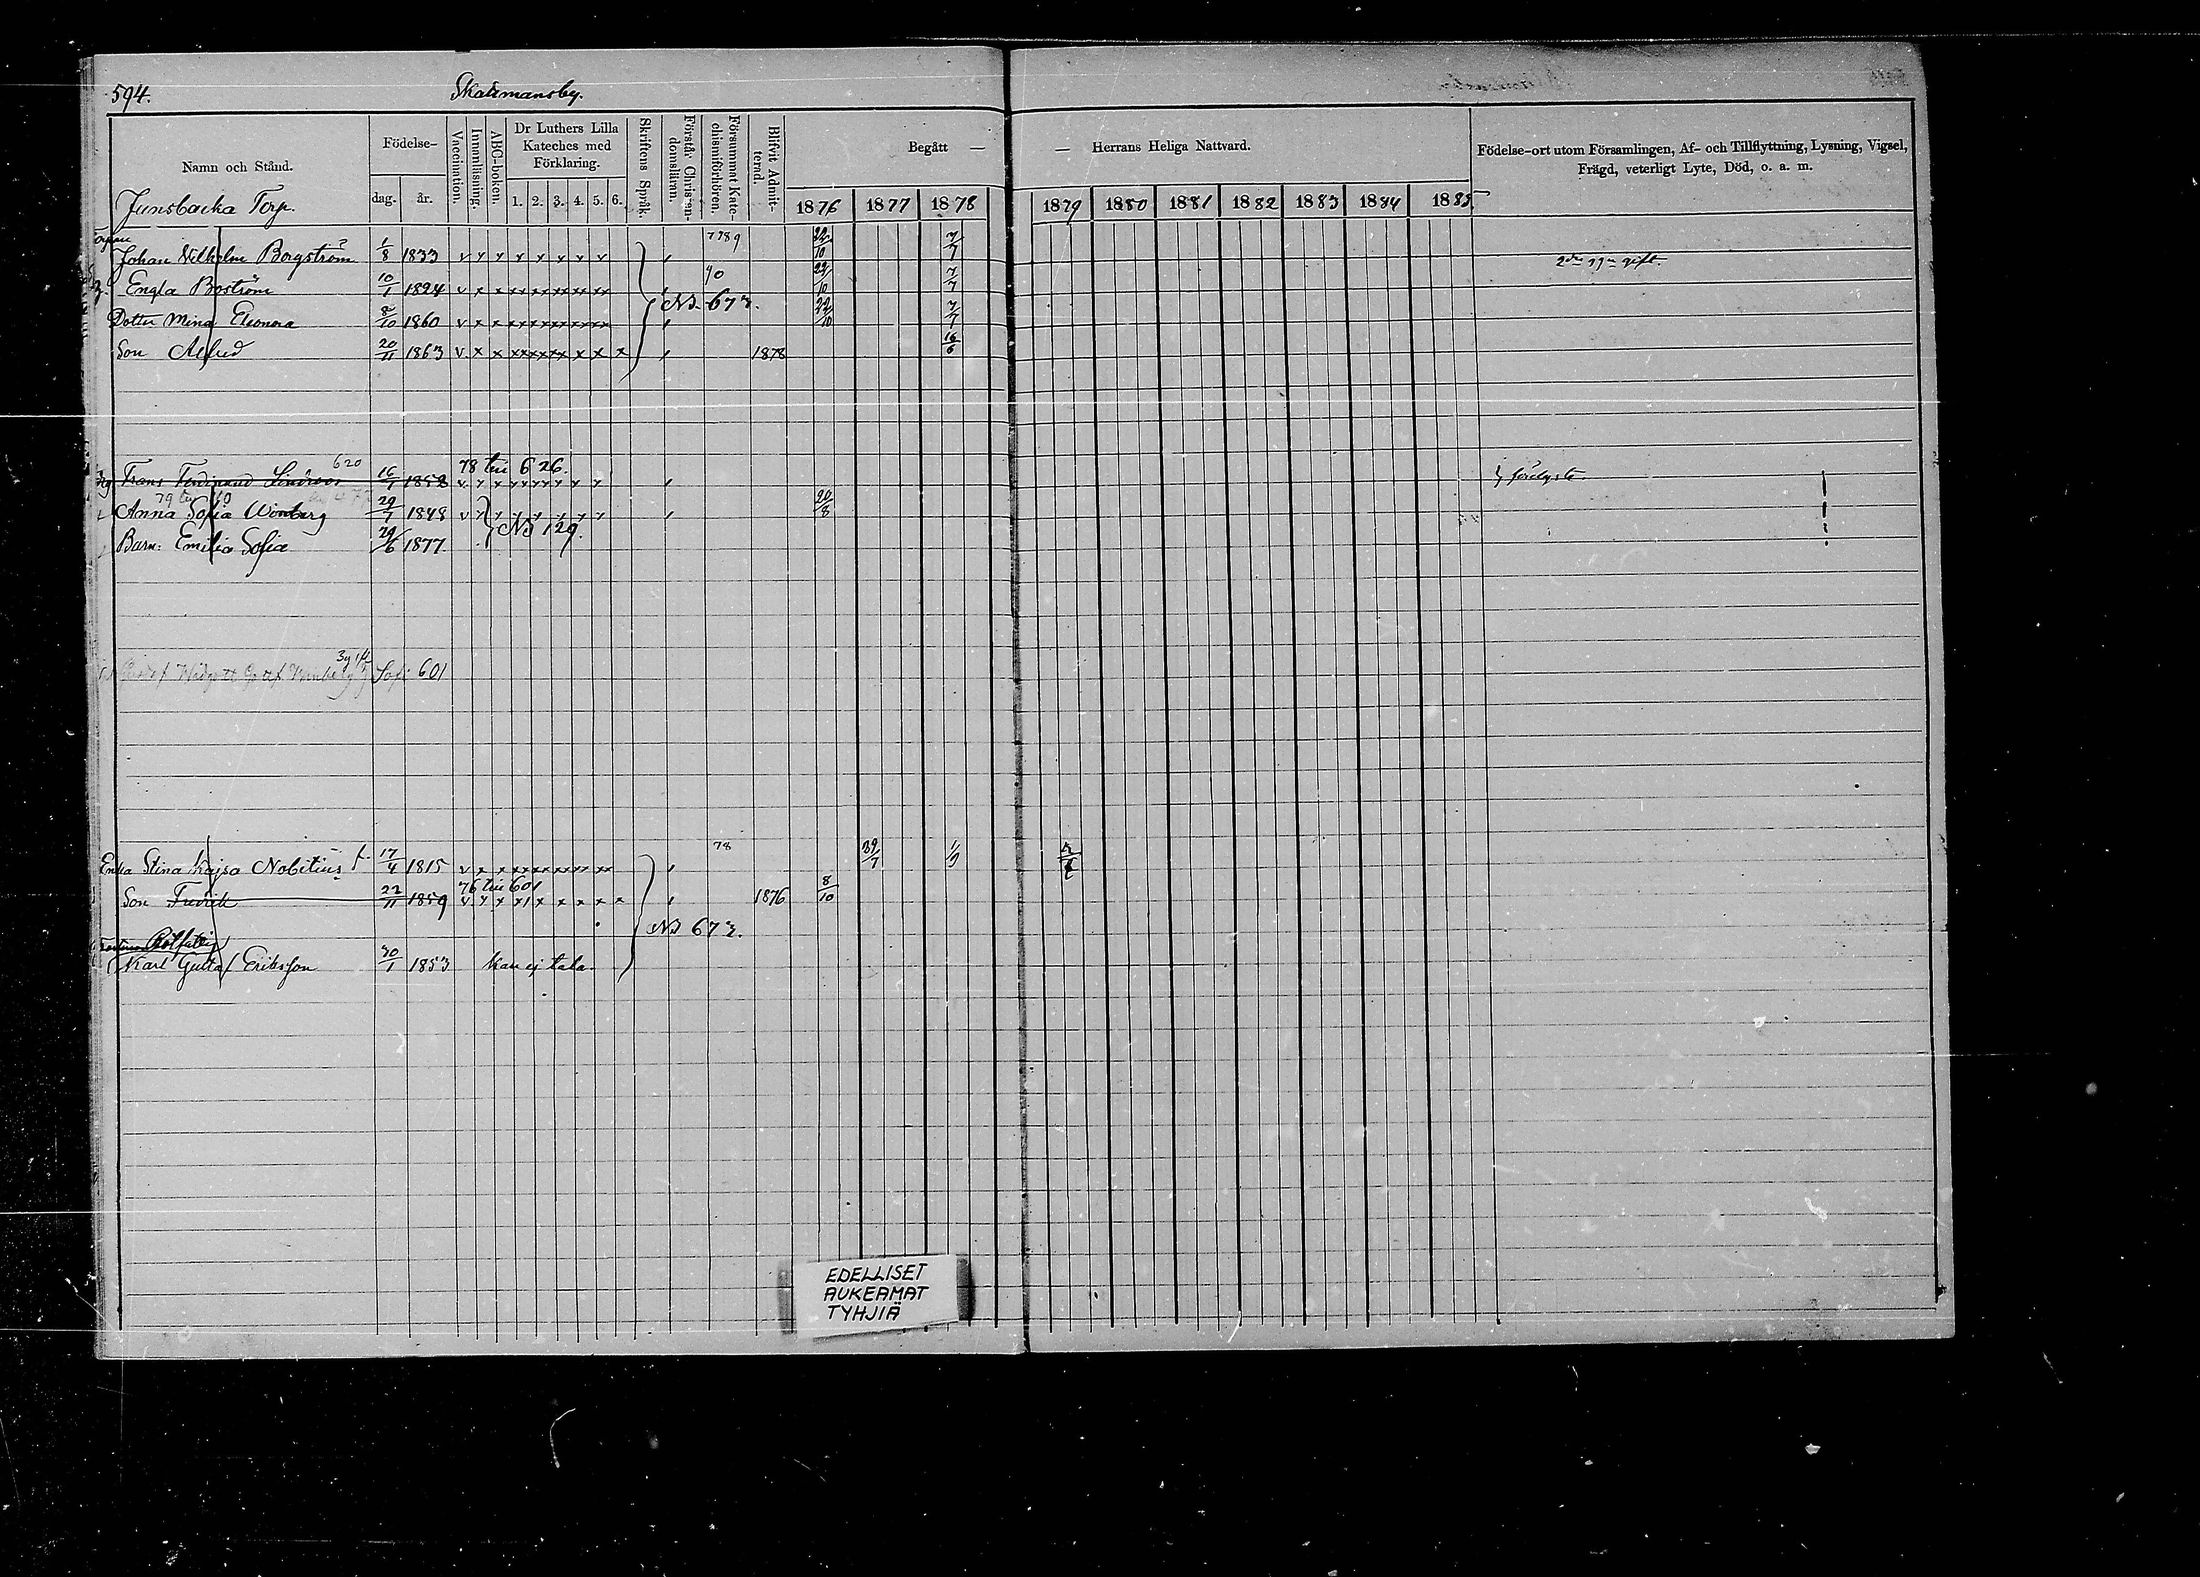 594.
Skatamansby.
Namn och Stånd.
Födelse-
dag. år.
Vaccination.
Innanläsning.
ABC-boken.
Dr Luthers Lilla Kateches med Förklaring.
1. 2. 3. 4. 5. 6.
Skriftens Språk.
Förstår Christendomsläran.
Försummat Katechismiförhören.
Blifvit Admitterad.
Begått —
— Herrans Heliga Nattvard.
Födelse-ort utom Församlingen, Af- och Tillflyttning, Lysning, Vigsel,
Frägd, veterligt Lyte, Död, o. a. m.
1876 1877 1878 1879 1880 1881 1882 1883 1884 1885
Junsbacka Torp.
Johan Vilhelm Borgström 1/8 1833 v x x x x x x x 7789 22/10 7/7 gift.
Engla Boström 10/1 1824 v x x xx xx xx xx xx 90 22/10 7/7
NB 673.
Dotter Mina Eleonora 8/10 1860 v x x xx xx xx xx xx 22/10 7/7
Son Alfred 20/11 1863 v x x xx xx xx x x x 1878 16/6
620
78 till 626.
Frans Ferdinand Lindroos 16/1 1858
79
Anna Sofia Wimberg 29/7 1848 20/8
NB 129.
Barn: Emilia Sofia 29/6 1877
601
78
Enka Stina Kajsa Nobelius f. 17/4 1815 v x x xx xx xx xx xx 29/7 1/9
76 till 601
Son Fredrik 22/11 1859 1876 8/10
NB 673.
Karl Gustaf Eriksson 30/1 1853 kan ej tala.
EDELLISET
AUKEAMAT
TYHJIÄ